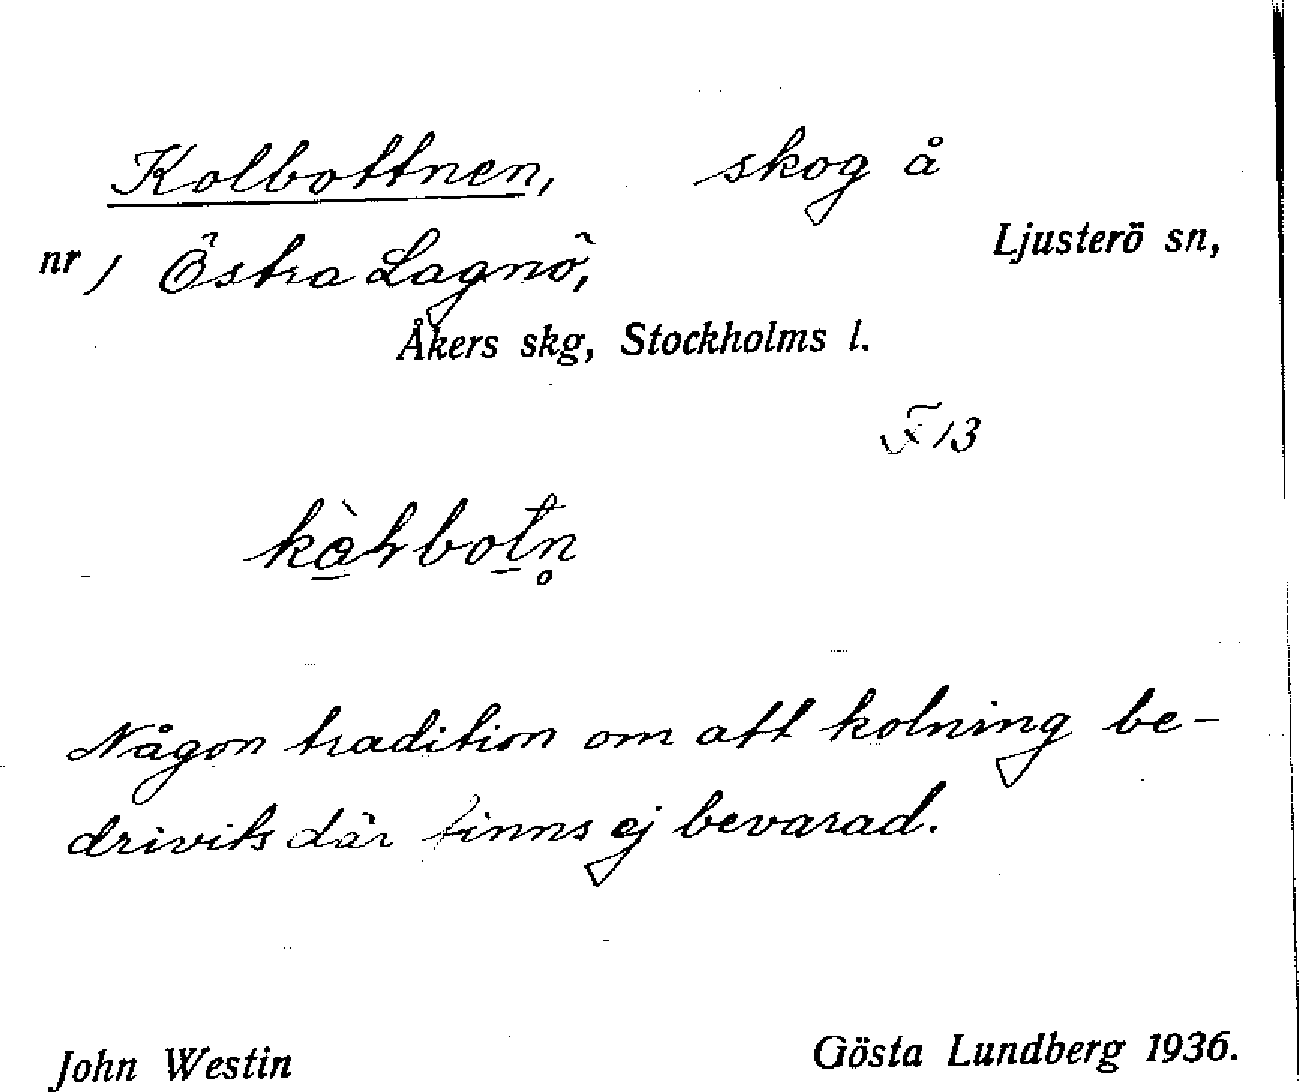 Kolbottnen, skog å
Ljusterö sn,
nr 1 Östra Lagnö,
Åkers skg, Stockholms l.
F13
Någon tradition om att kolning be-
drivits där finns ej bevarad.
John Westin
Gösta Lundberg 1936.